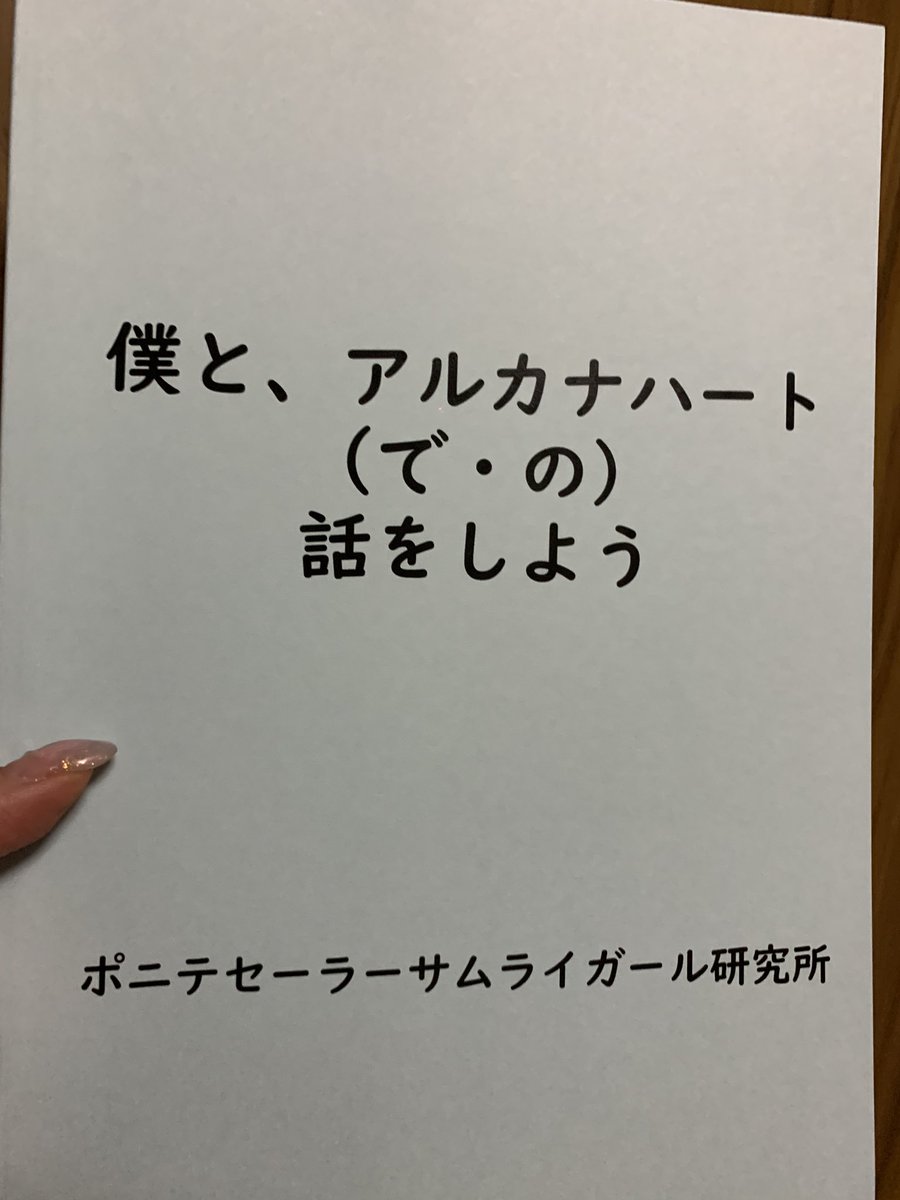 僕と、アルカナハート
（で・の）
話をしよう
ポニテセーラーサムライガール研究所